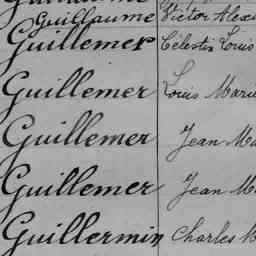 Guillaume Victor Alexi
Guillemer Célestin Louis
Guillemer Louis Marie
Guillemer Jean Ma
Guillemer Jean M
Guillermin Charles M